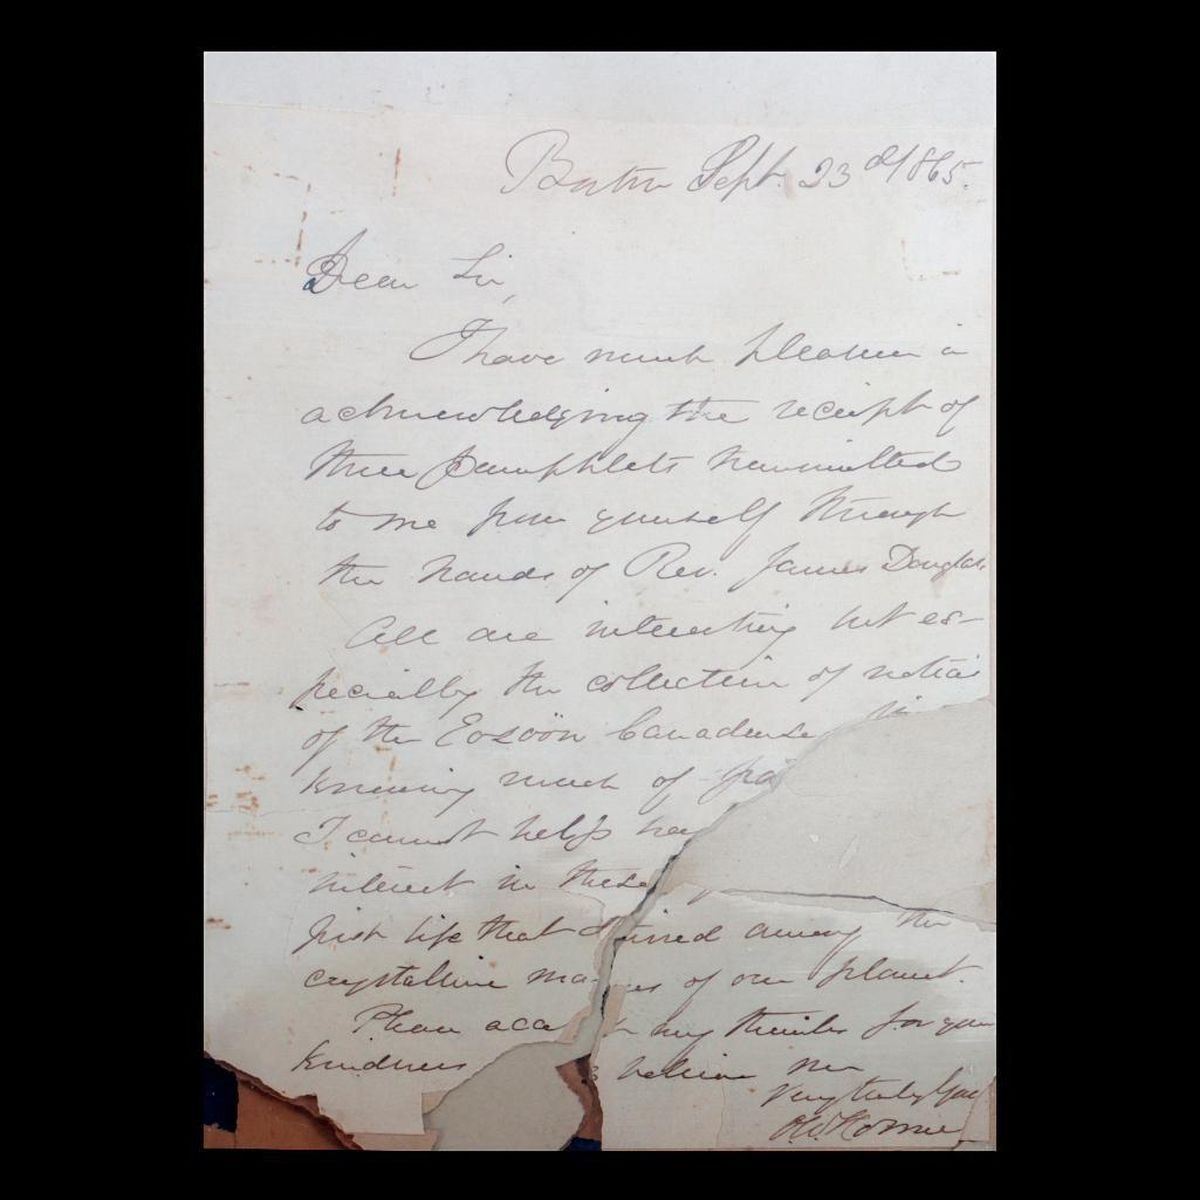 Boston Sept. 23d 1865.
Dear Sir,
I have much pleasure in
acknowledging the receipt of
three Pamphlets transmitted
to me from yourself through
the hands of Rev. James Douglas.
All are interesting but es-
pecially the collection of notices
of the Eozöön Canadense
knowing much of
I cannot help
interest in these
first life that stirred among the
crystalline masses of our planet.
Please accept my thanks for your
kindness believe me
Very truly Yours
O. W. Holmes